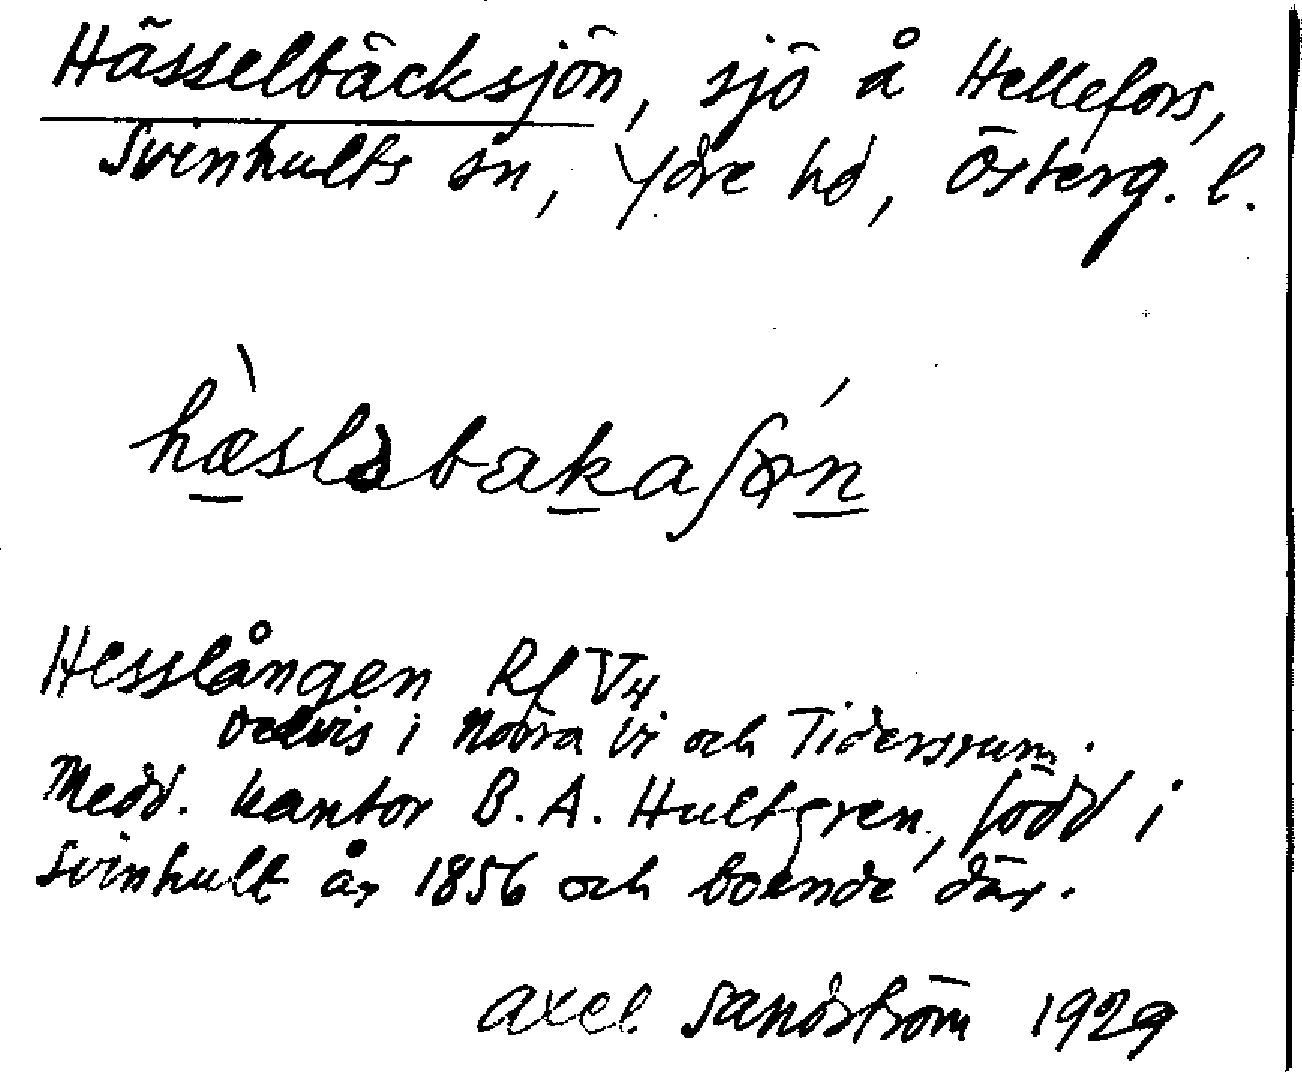 Hässelbäcksjön, sjö å Hellefors,
Svinhults sn, Ydre hd, Österg. l.
hæslabakaʃøn
Hesslången Rf V4
delvis i Norra Vi och Tidersrum.
Medd. kantor B. A. Hultgren, född i
Svinhult år 1856 och boende där.
Axel Sandström 1929